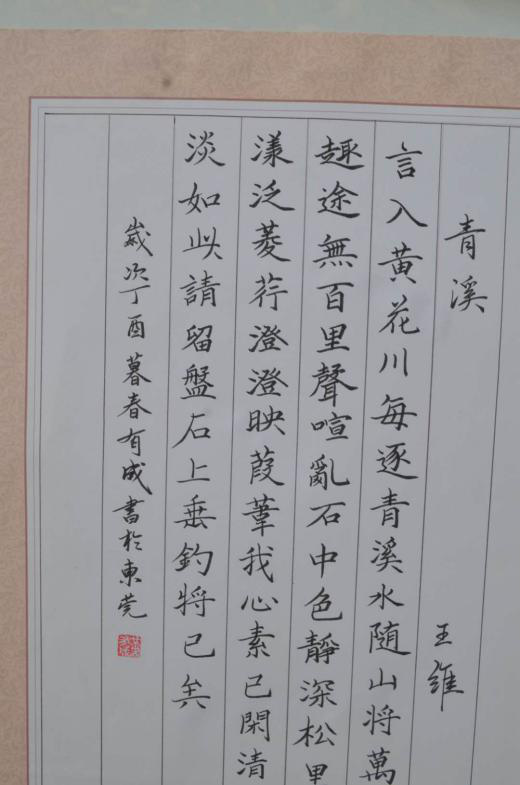 青溪 王維
言入黄花川每逐青溪水随山将萬
趣途無百里聲喧亂石中色靜深松里
漾泛菱荇澄澄映葭葦我心素已閑清
淡如此請留盤石上垂釣将已矣
歲次丁酉暮春有成書於東莞